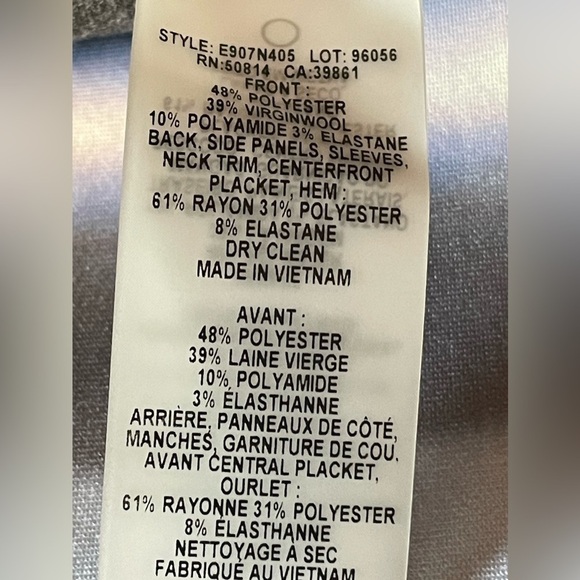 STYLE: E907N405 LOT: 96056
RN:50814 CA:39861
FRONT :
48% POLYESTER
39% VIRGINWOOL
10% POLYAMIDE 3% ELASTANE
BACK, SIDE PANELS, SLEEVES,
NECK TRIM, CENTERFRONT
PLACKET, HEM :
61% RAYON 31% POLYESTER
8% ELASTANE
DRY CLEAN
MADE IN VIETNAM
AVANT :
48% POLYESTER
39% LAINE VIERGE
10% POLYAMIDE
3% ÉLASTHANNE
ARRIÈRE, PANNEAUX DE CÔTÉ,
MANCHES, GARNITURE DE COU,
AVANT CENTRAL PLACKET,
OURLET :
61% RAYONNE 31% POLYESTER
8% ÉLASTHANNE
NETTOYAGE À SEC
FABRIQUÉ AU VIETNAM